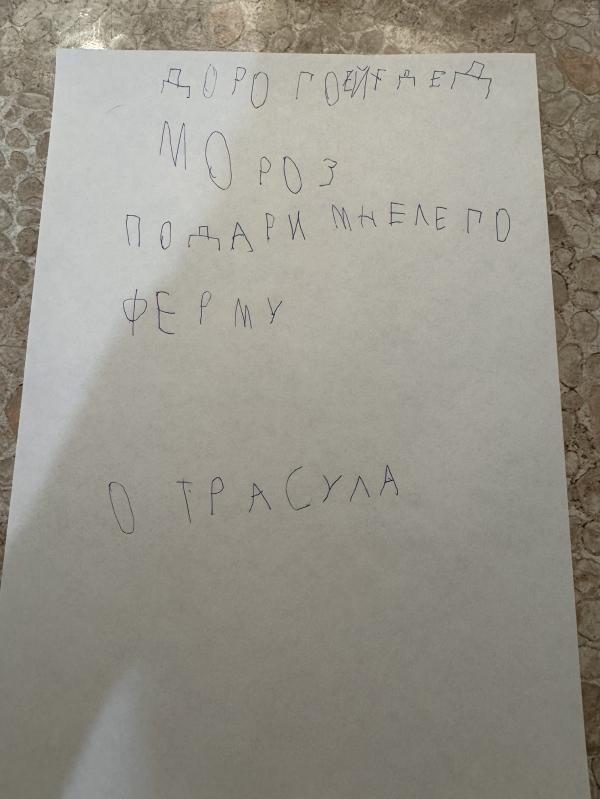 ДОРО ГОЕЙ ДЕД
МОРОЗ
ПОДАРИ МНЕЛЕГО
ФЕРМУ
ОТ РАСУЛА